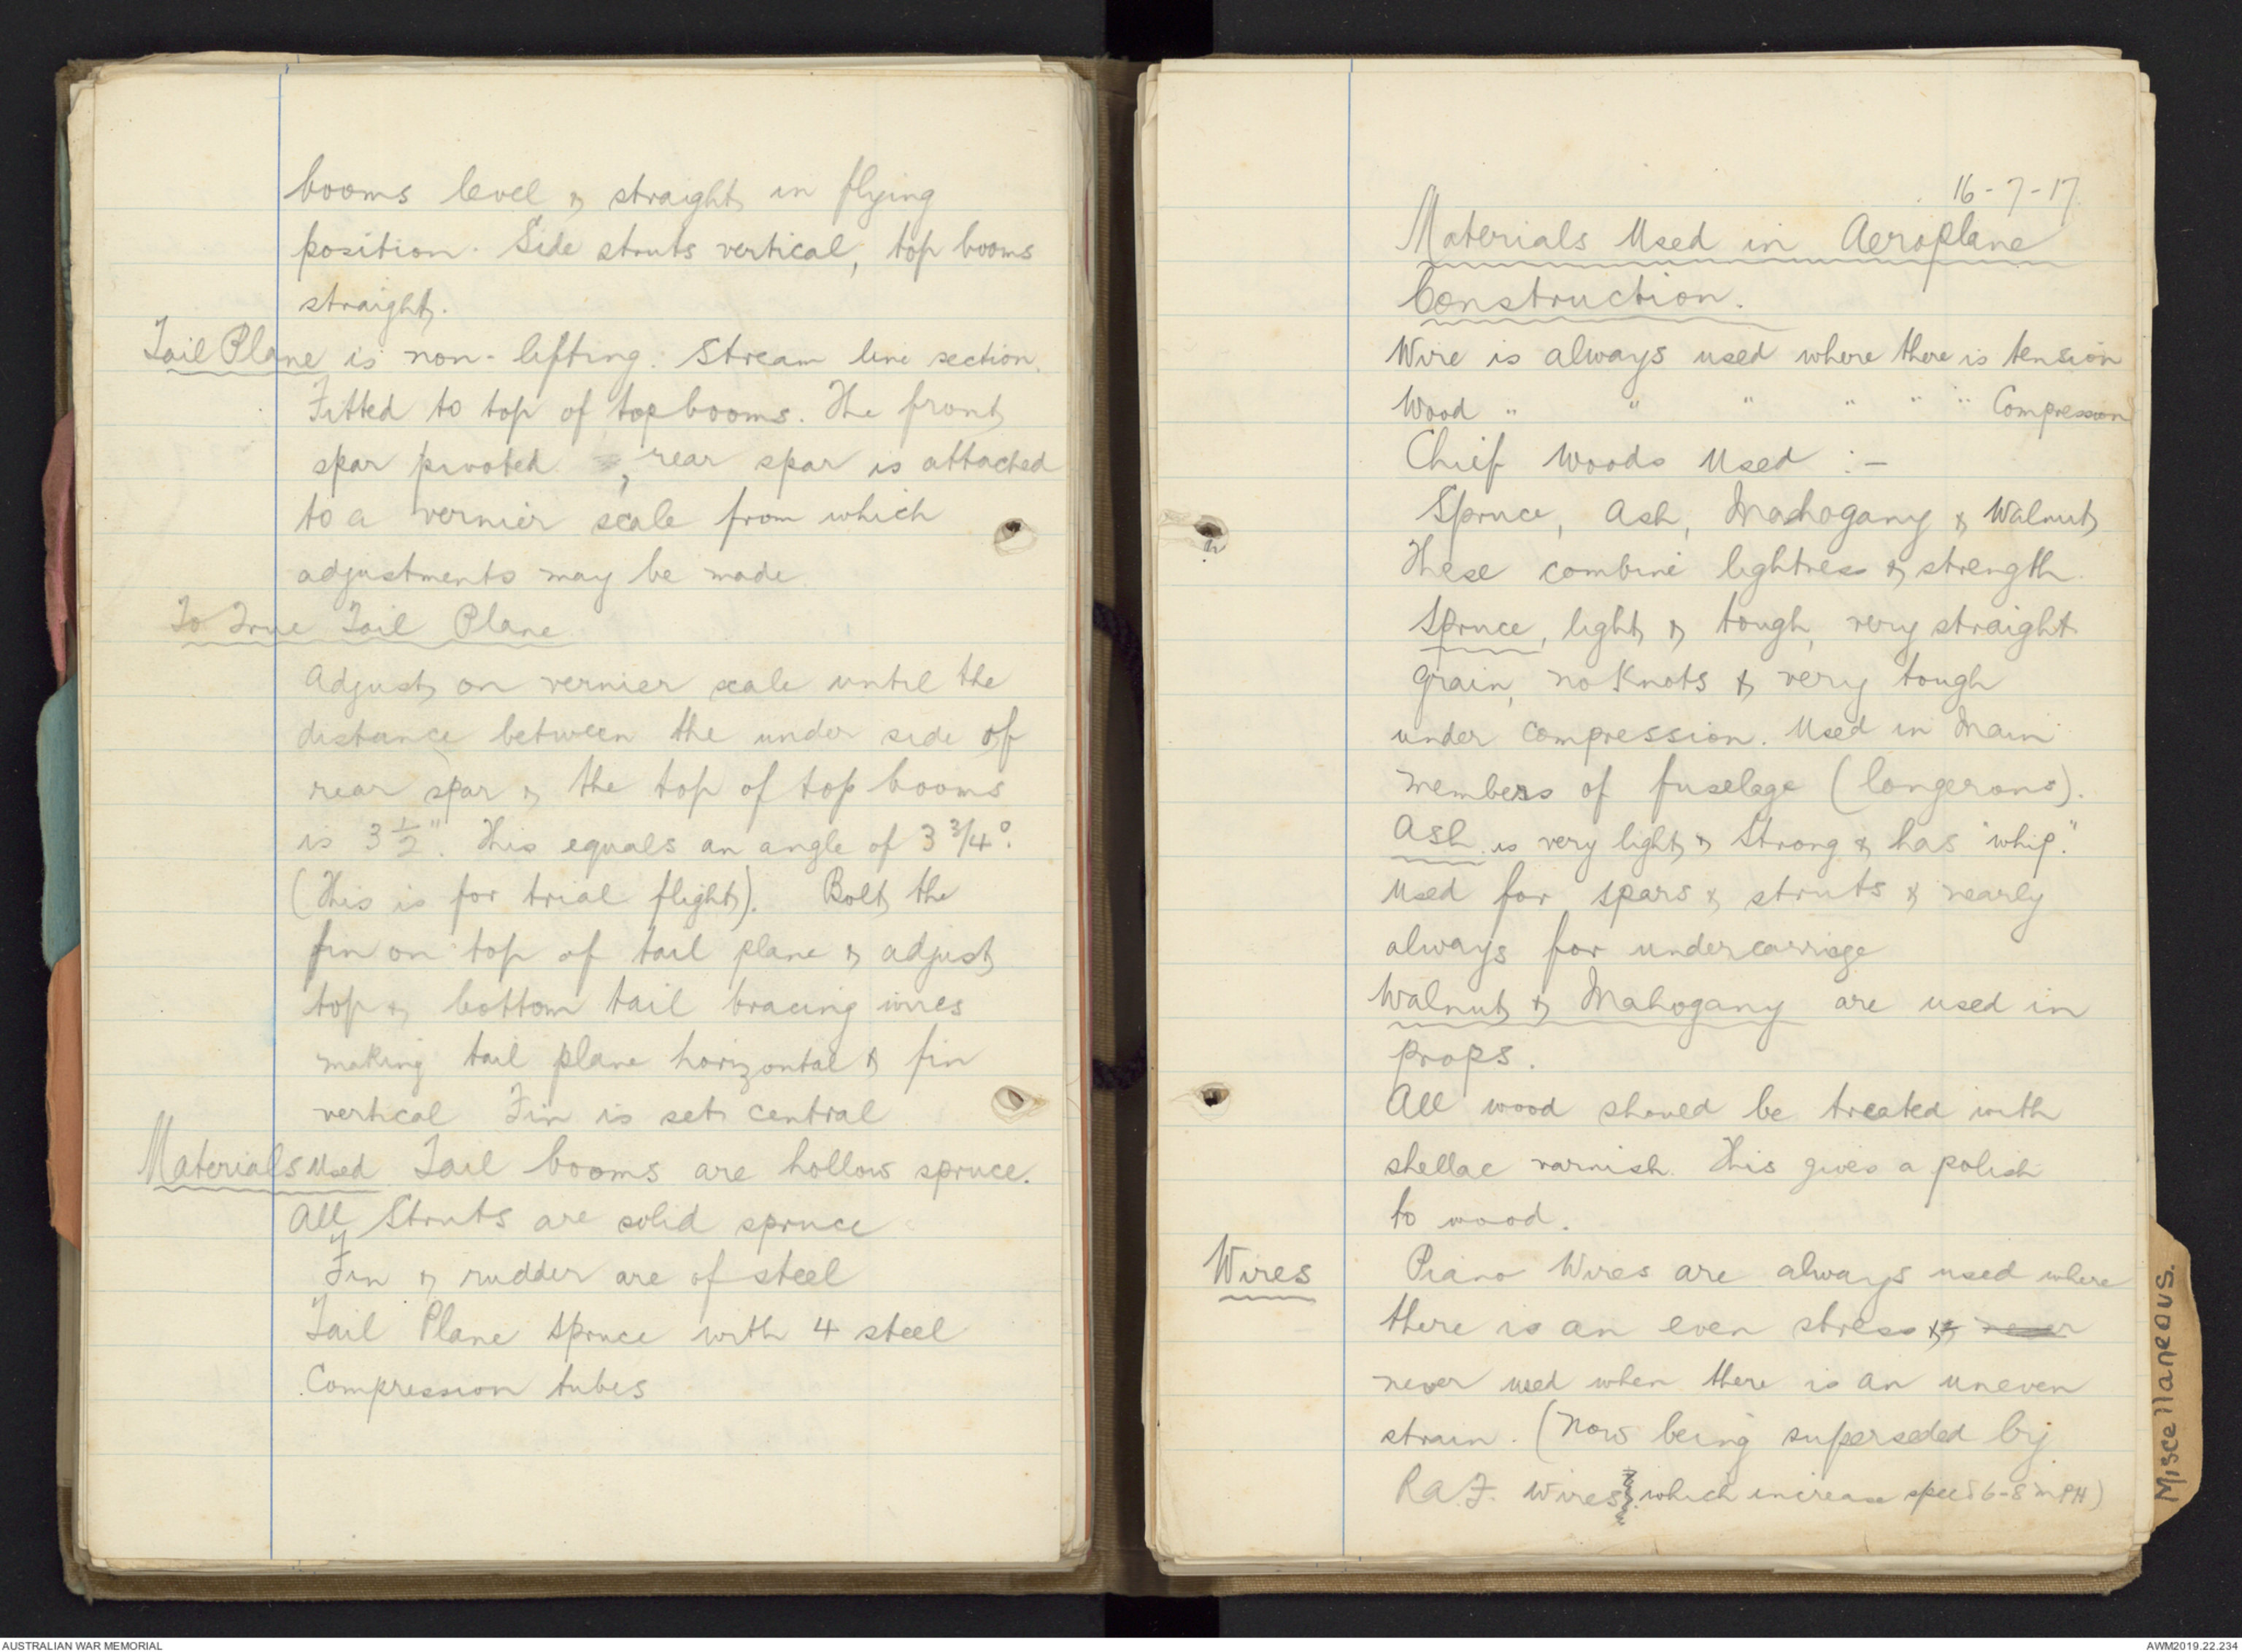 booms level & straight in flying
position. Side struts vertical, top booms
straight.
Tail Plane is non-lifting. Stream line section.
Fitted to top of top booms. The front
spar pivoted, rear spar is attached
to a vernier scale from which
adjustments may be made.
To True Tail Plane
Adjust on vernier scale until the
distance between the under side of
rear spar & the top of top booms
is 3 1/2". This equals an angle of 3 3/4°.
(This is for trial flight). Bolt the
fin on top of tail plane & adjust
top & bottom tail bracing wires
making tail plane horizontal & fin
vertical Fin is set central
Materials Used Tail booms are hollow spruce.
All Struts are solid spruce
Fin & rudder are of steel
Tail Plane Spruce with 4 steel
Compression tubes
16-7-17
Materials Used in Aeroplane
Construction.
Wire is always used where there is tension
Wood " " " " " " Compression
Chief Woods Used :-
Spruce, Ash, Mahogany & Walnut
These combine lightness & strength.
Spruce, light & tough, very straight
grain, no knots & very tough
under compression. Used in Main
members of fuselage (longerons).
Ash is very light & Strong & has "whip."
Used for spars & struts & nearly
always for undercarriage
Walnut & Mahogany are used in
props.
All wood should be treated with
shellac varnish. This gives a polish
to wood.
Wires Piano Wires are always used where
there is an even stress & never
never used when there is an uneven
strain. (Now being superseded by
RAF. Wires which increase speed 6-8 MPH)
Miscellaneous.
AUSTRALIAN WAR MEMORIAL
AWM2019.22.234